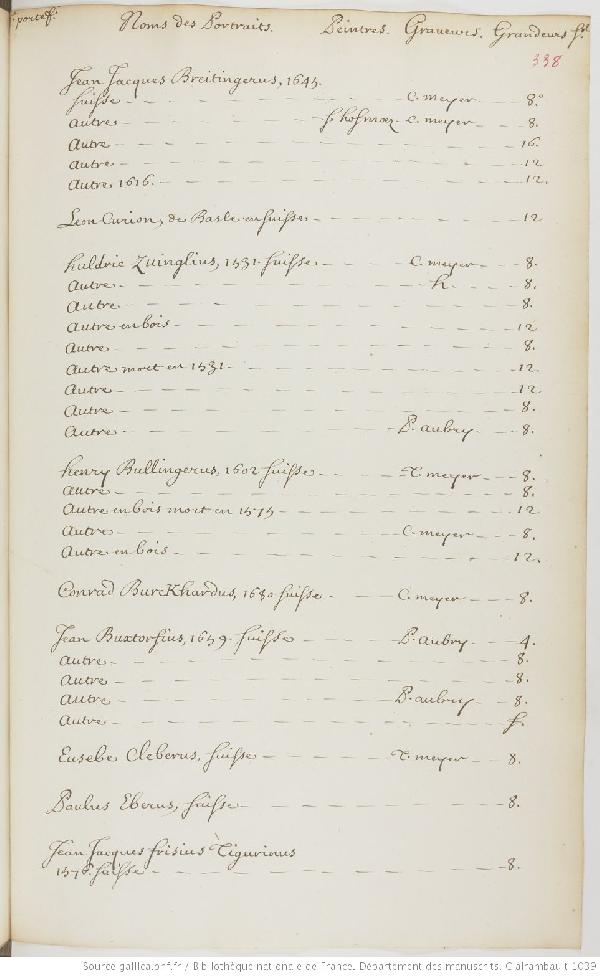 portef. Noms des Portraits. Peintres. Graveurs. Grandeurs
338
Jean Jacques Breitingerus, 1645.
suisse C. meyer 8.
autre C. meyer 8.
autre 16.
autre 12
autre 1616. 12.
Leon Curion, de Basle en suisse 12
huldric Zuinglius, 1531. suisse. C. meyer 8.
autre. h. 8.
autre 8.
autre en bois 12
autre 8.
autre mort en 1531. 12.
autre 12.
autre 8.
autre P. aubry 8.
henry Bullingerus, 1602 suisse T. meyer 8.
autre 8.
autre en bois mort en 1575 12
autre C. meyer 8.
autre en bois 12.
Conrad Burckhardus, 1680 suisse C. meyer 8.
Jean Buxtorfius, 1659. suisse P. aubry 4.
autre 8.
autre 8.
autre P. aubry 8.
autre f.
Eusebe Cleberus, suisse T. meyer 8.
Paulus Eberus, suisse 8.
Jean Jacques frisius Tigurinus
1576 suisse 8.
Source gallica.bnf.fr / Bibliothèque nationale de France. Département des manuscrits. Clairambault 1039